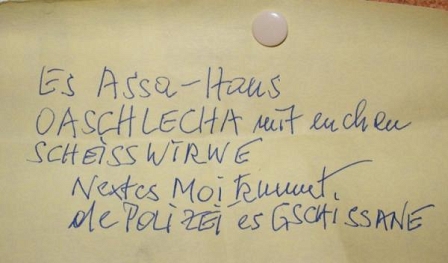 Es Assa-Haus
OASCHLECHA mit enchan
SCHEISSWIRWE
Nextes Moi kummt,
de POLIZEI es GSCHISSANE